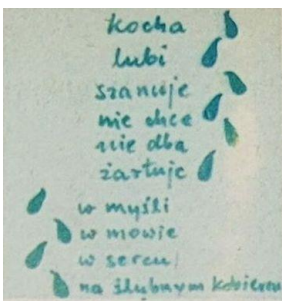 kocha
lubi
szanuje
nie chce
nie dba
żartuje
w myśli
w mowie
w sercu
na ślubnym kobiercu